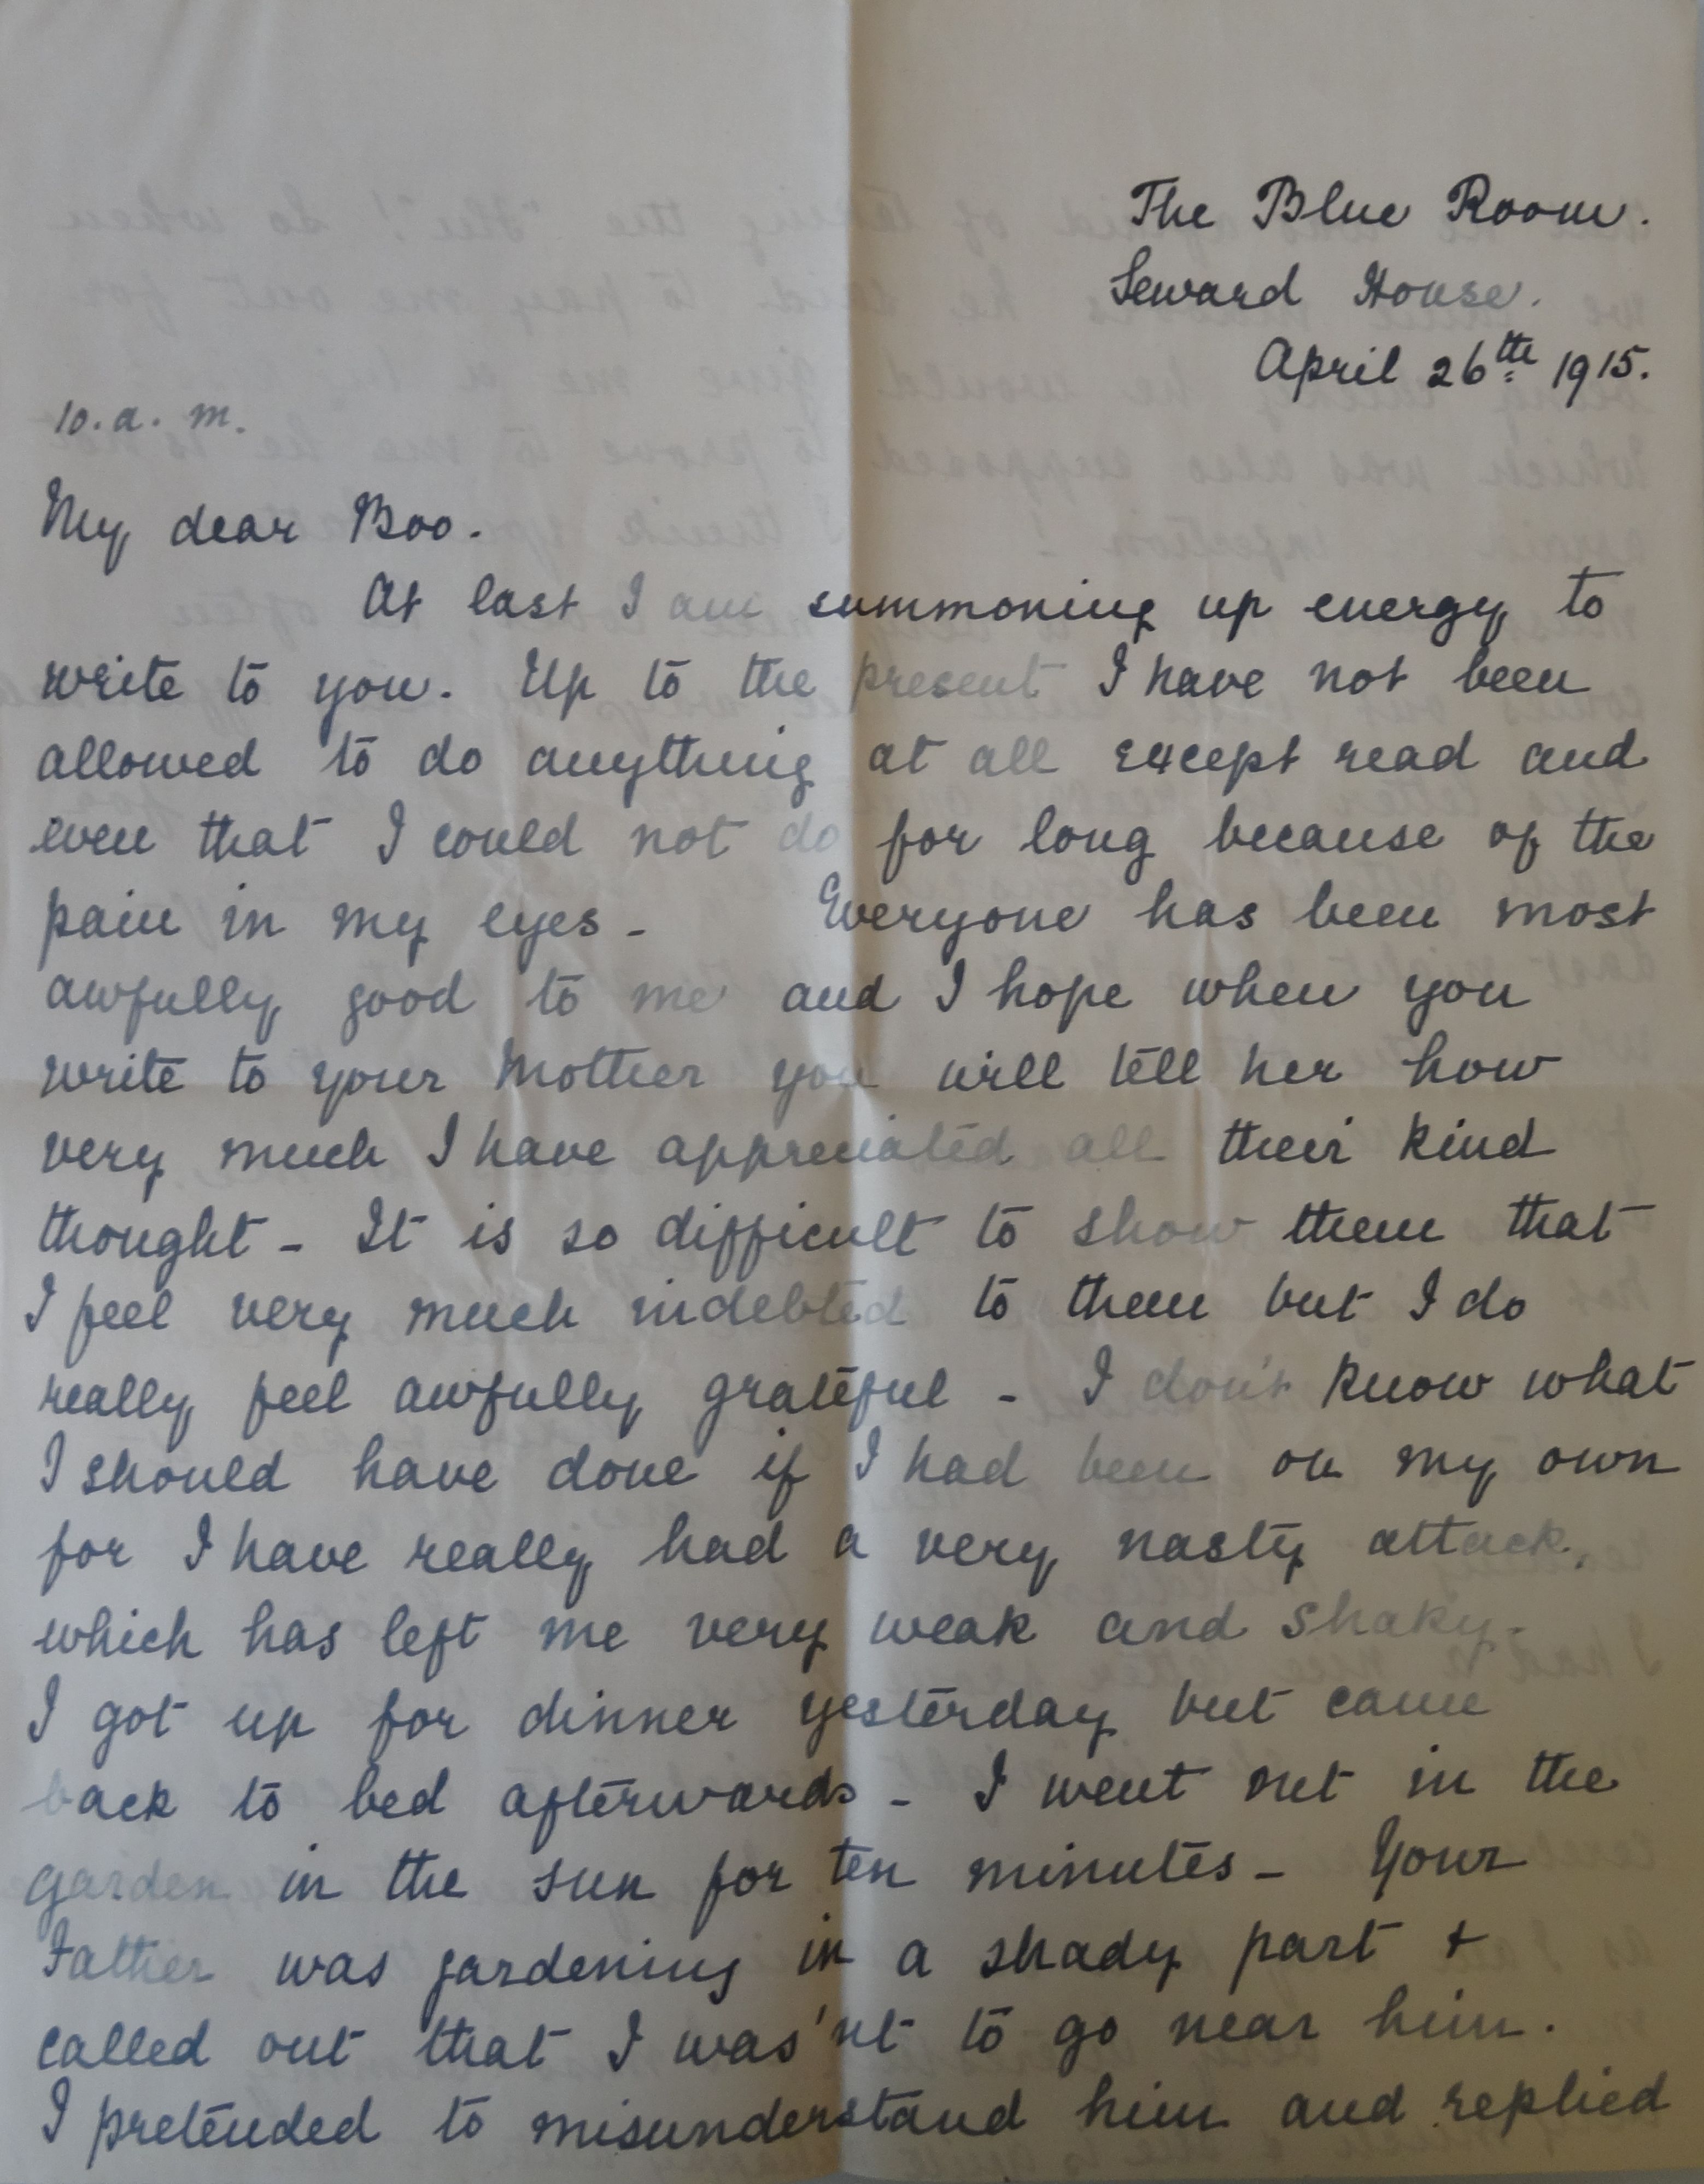 The Blue Room.
Seward House.
April 26th 1915.
10. a. m.
My dear Boo.
At last I am summoning up energy to
write to you. Up to the present I have not been
allowed to do anything at all except read and
even that I could not do for long because of the
pain in my eyes - Everyone has been most
awfully good to me and I hope when you
write to your Mother you will tell her how
very much I have appreciated all their kind
thought - It is so difficult to show them that
I feel very much indebted to them but I do
really feel awfully grateful - I don't know what
I should have done if I had been on my own
for I have really had a very nasty attack,
which has left me very weak and shaky.
I got up for dinner yesterday but came
back to bed afterwards - I went out in the
garden in the sun for ten minutes - Your
Father was gardening in a shady part +
called out that I was'nt to go near him.
I pretended to misunderstand him and replied